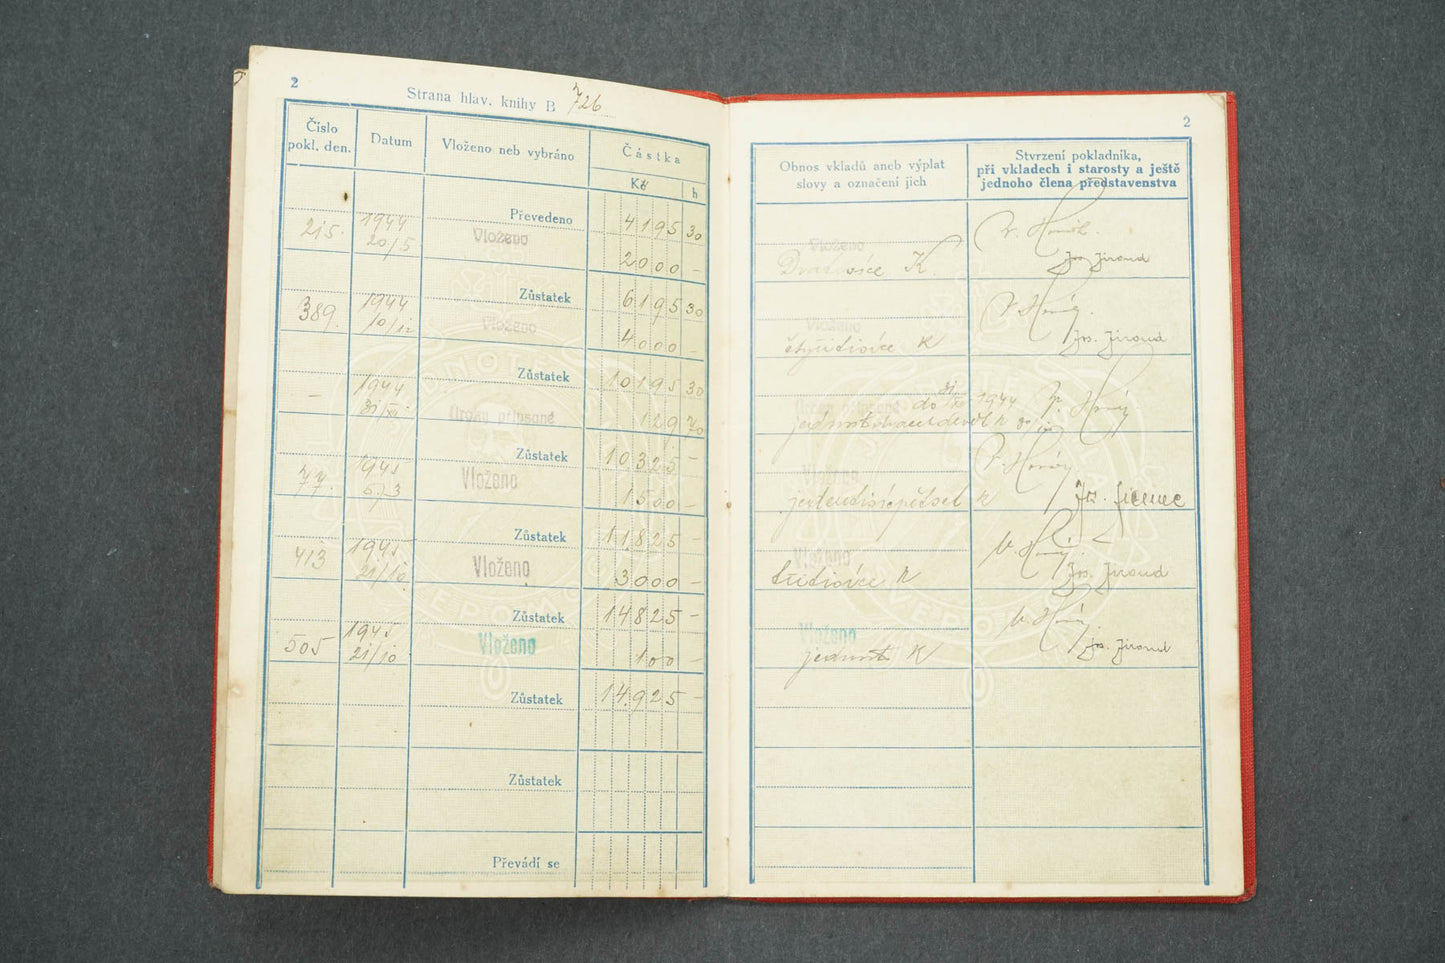 2
Strana hlav. knihy B 726
Číslo pokl. den.
Datum
Vloženo neb vybráno
Částka
Kč
h
Převedeno 4195 30
215. 1944 20/5 Vloženo 2000 –
Zůstatek 6195 30
389. 1944 10/12 Vloženo 4000 –
Zůstatek 10195 30
– 1944 31/XII Úroky připsané 129 70
Zůstatek 10325 –
77. 1945 5/3 Vloženo 1500 –
Zůstatek 11825 –
413 1945 21/10 Vloženo 3000 –
Zůstatek 14825 –
505 1945 21/10 Vloženo 100 –
Zůstatek 14.925 –
Zůstatek
Převádí se
2
Obnos vkladů aneb výplat
slovy a označení jich
Stvrzení pokladníka,
při vkladech i starosty a ještě
jednoho člena představenstva
Vloženo
K.
Jos. Jiroud
Vloženo
čtyřitisíce K
Jos. Jiroud
Úroky připsané do 31/XII 1944
Vloženo
jedentisícpětset K
Vloženo
třitisíce K
Jos. Jiroud
Vloženo
jednosto K
Jos. Jiroud